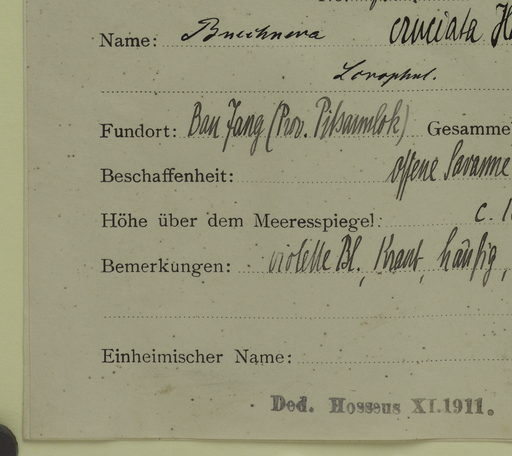 Name: Buechnera cruciata H
Scrophul.
Fundort: Ban Jang (Prov. Pitsanulok) Gesamme
Beschaffenheit: offene Savanne
Höhe über dem Meeresspiegel: c.
Bemerkungen: violette Bl., Kraut, häufig,
Einheimischer Name:
Ded. Hosseus XI.1911.